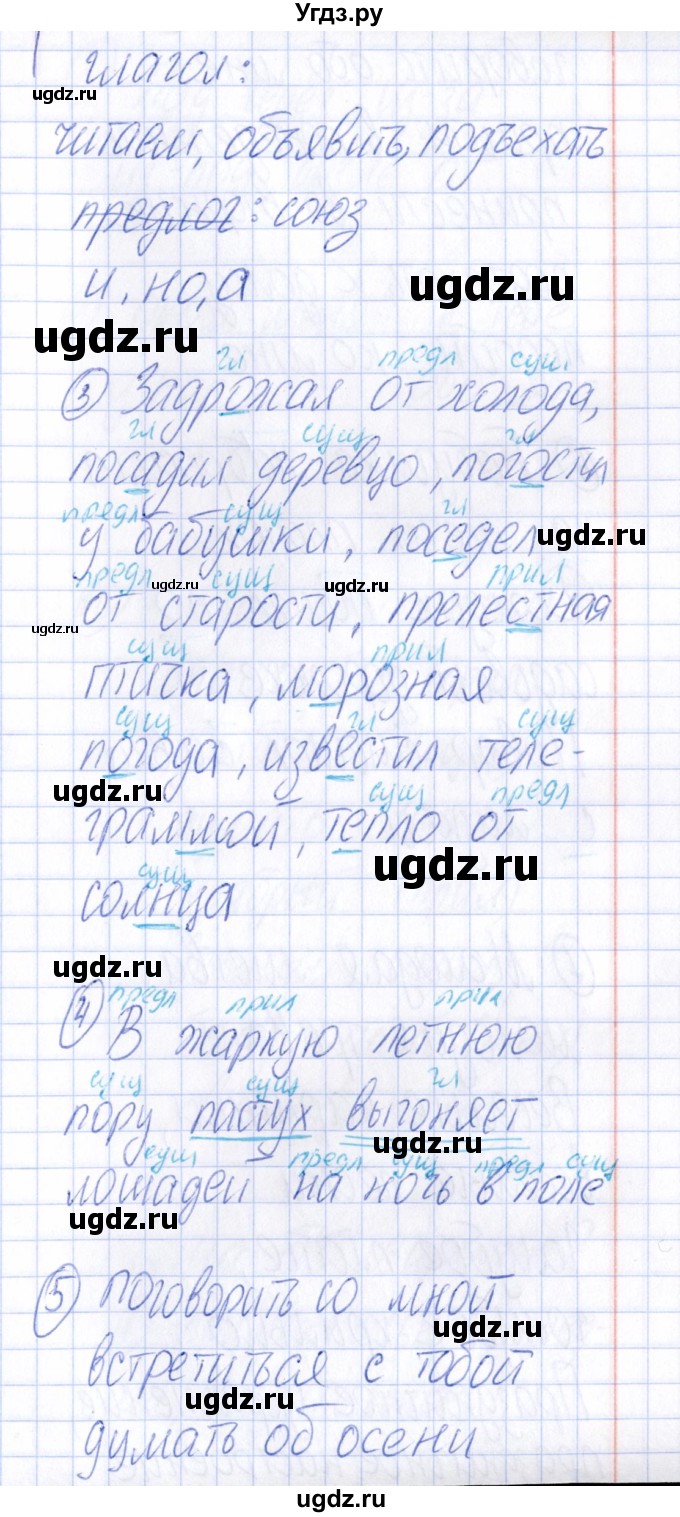 Угдз.ру
глагол:
ugdz.ru
читаем, объявить, подъехать
предлог: союз
и, но, а
ugdz.ru
ugdz.ru
гл предл сущ
3 Задрожал от холода,
гл сущ гл
посадил деревцо, погостил
предл сущ гл
у бабушки, поседел
ugdz.ru
предл сущ прил
ugdz.ru ugdz.ru
от старости, прелестная
ugdz.ru
сущ прил
птичка, морозная
сущ гл сущ
погода, известил теле-
ugdz.ru
сущ предл
граммой, тепло от
ugdz.ru
сущ
солнца
ugdz.ru
предл прил прил
4 В жаркую летнюю
сущ сущ гл
пору пастух выгоняет
ugdz.ru
сущ предл сущ предл сущ
лошадей на ночь в поле
ugdz.ru
5 поговорить со мной
ugdz.ru
встретиться с тобой
ugdz.ru
думать об осени
ugdz.ru